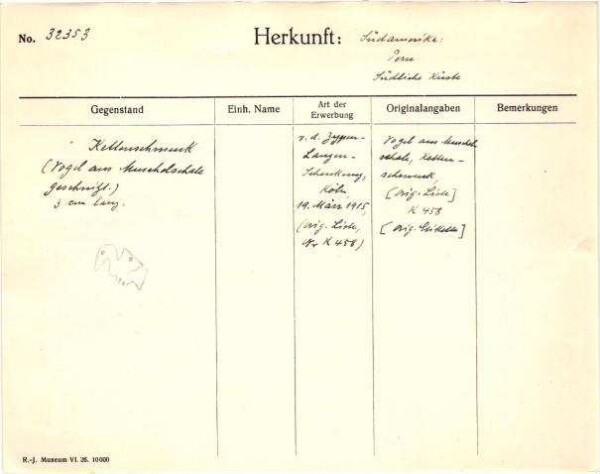 No. 32353
Herkunft: Südamerika:
Peru
Südliche Küste
Gegenstand
Einh. Name
Art der Erwerbung
Originalangaben
Bemerkungen
Kettenschmuck
(Vogel aus Muschelschale
geschnitzt.)
3 cm lang.
v. d. Zypen-
Langen-
Schenkung,
Köln,
19. März 1915,
(orig. Liste,
Nr K 458)
Vogel aus Muschel
schale, Ketten-
schmuck,
[orig. Liste]
K 458
[orig. Etikette]
R.-J. Museum VI. 26. 10000